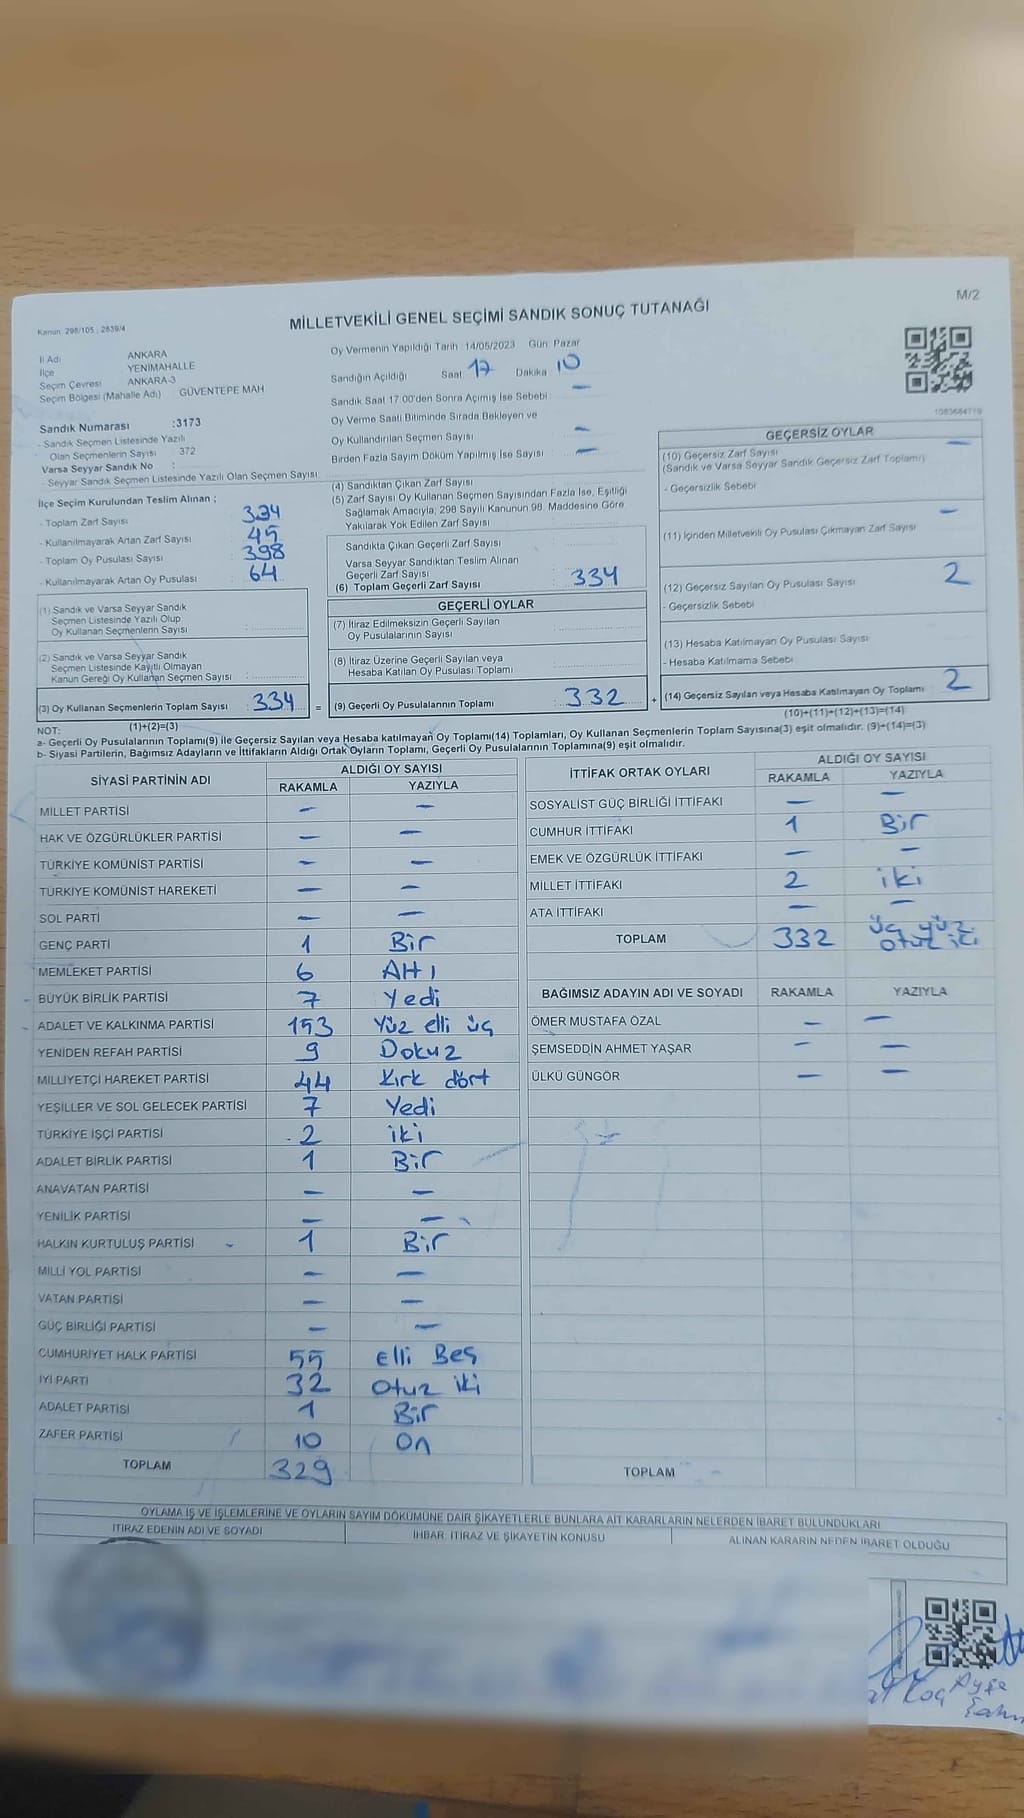 M/2
Kanun: 298/105 ; 2839/4
MİLLETVEKİLİ GENEL SEÇİMİ SANDIK SONUÇ TUTANAĞI
İl Adı ANKARA
İlçe YENİMAHALLE
Seçim Çevresi ANKARA-3
Seçim Bölgesi (Mahalle Adı) GÜVENTEPE MAH
Sandık Numarası :3173
- Sandık Seçmen Listesinde Yazılı
Olan Seçmenlerin Sayısı : 372
Varsa Seyyar Sandık No :
- Seyyar Sandık Seçmen Listesinde Yazılı Olan Seçmen Sayısı :
Oy Vermenin Yapıldığı Tarih 14/05/2023 Gün: Pazar
Sandığın Açıldığı Saat 17 Dakika 10
Sandık Saat 17.00'den Sonra Açılmış İse Sebebi —
Oy Verme Saati Bitiminde Sırada Bekleyen ve
Oy Kullandırılan Seçmen Sayısı —
Birden Fazla Sayım Döküm Yapılmış İse Sayısı : —
İlçe Seçim Kurulundan Teslim Alınan ;
- Toplam Zarf Sayısı
- Kullanılmayarak Artan Zarf Sayısı : 45
- Toplam Oy Pusulası Sayısı : 398
- Kullanılmayarak Artan Oy Pusulası : 64
(1) Sandık ve Varsa Seyyar Sandık
Seçmen Listesinde Yazılı Olup
Oy Kullanan Seçmenlerin Sayısı :
(2) Sandık ve Varsa Seyyar Sandık
Seçmen Listesinde Kayıtlı Olmayan
Kanun Gereği Oy Kullanan Seçmen Sayısı :
(3) Oy Kullanan Seçmenlerin Toplam Sayısı : 334 =
(4) Sandıktan Çıkan Zarf Sayısı :
(5) Zarf Sayısı Oy Kullanan Seçmen Sayısından Fazla İse, Eşitliği
Sağlamak Amacıyla; 298 Sayılı Kanunun 98. Maddesine Göre
Yakılarak Yok Edilen Zarf Sayısı :
Sandıkta Çıkan Geçerli Zarf Sayısı :
Varsa Seyyar Sandıktan Teslim Alınan
Geçerli Zarf Sayısı :
(6) Toplam Geçerli Zarf Sayısı : 334
GEÇERLİ OYLAR
(7) İtiraz Edilmeksizin Geçerli Sayılan
Oy Pusulalarının Sayısı :
(8) İtiraz Üzerine Geçerli Sayılan veya
Hesaba Katılan Oy Pusulası Toplamı :
(9) Geçerli Oy Pusulalarının Toplamı : 332 +
GEÇERSİZ OYLAR
(10) Geçersiz Zarf Sayısı —
(Sandık ve Varsa Seyyar Sandık Geçersiz Zarf Toplamı)
- Geçersizlik Sebebi
(11) İçinden Milletvekili Oy Pusulası Çıkmayan Zarf Sayısı —
(12) Geçersiz Sayılan Oy Pusulası Sayısı 2
- Geçersizlik Sebebi
(13) Hesaba Katılmayan Oy Pusulası Sayısı
- Hesaba Katılmama Sebebi
(14) Geçersiz Sayılan veya Hesaba Katılmayan Oy Toplamı 2
(10)+(11)+(12)+(13)=(14)
NOT: (1)+(2)=(3)
a- Geçerli Oy Pusulalarının Toplamı(9) ile Geçersiz Sayılan veya Hesaba katılmayan Oy Toplamı(14) Toplamları, Oy Kullanan Seçmenlerin Toplam Sayısına(3) eşit olmalıdır. (9)+(14)=(3)
b- Siyasi Partilerin, Bağımsız Adayların ve İttifakların Aldığı Ortak Oyların Toplamı, Geçerli Oy Pusulalarının Toplamına(9) eşit olmalıdır.
SİYASİ PARTİNİN ADI ALDIĞI OY SAYISI
RAKAMLA YAZIYLA
MİLLET PARTİSİ — —
HAK VE ÖZGÜRLÜKLER PARTİSİ — —
TÜRKİYE KOMÜNİST PARTİSİ — —
TÜRKİYE KOMÜNİST HAREKETİ — —
SOL PARTİ — —
GENÇ PARTİ 1 Bir
MEMLEKET PARTİSİ 6 Altı
BÜYÜK BİRLİK PARTİSİ 7 Yedi
ADALET VE KALKINMA PARTİSİ 153 Yüz elli üç
YENİDEN REFAH PARTİSİ 9 Dokuz
MİLLİYETÇİ HAREKET PARTİSİ 44 Kırk dört
YEŞİLLER VE SOL GELECEK PARTİSİ 7 Yedi
TÜRKİYE İŞÇİ PARTİSİ 2 iki
ADALET BİRLİK PARTİSİ 1 Bir
ANAVATAN PARTİSİ — —
YENİLİK PARTİSİ — —
HALKIN KURTULUŞ PARTİSİ 1 Bir
MİLLİ YOL PARTİSİ — —
VATAN PARTİSİ — —
GÜÇ BİRLİĞİ PARTİSİ — —
CUMHURİYET HALK PARTİSİ 55 Elli Beş
İYİ PARTİ 32 Otuz iki
ADALET PARTİSİ 1 Bir
ZAFER PARTİSİ 10 On
TOPLAM 329
İTTİFAK ORTAK OYLARI ALDIĞI OY SAYISI
RAKAMLA YAZIYLA
SOSYALİST GÜÇ BİRLİĞİ İTTİFAKI — —
CUMHUR İTTİFAKI 1 Bir
EMEK VE ÖZGÜRLÜK İTTİFAKI — —
MİLLET İTTİFAKI 2 iki
ATA İTTİFAKI — —
TOPLAM 332 üç yüz
otuz iki
BAĞIMSIZ ADAYIN ADI VE SOYADI RAKAMLA YAZIYLA
ÖMER MUSTAFA ÖZAL — —
ŞEMSEDDİN AHMET YAŞAR — —
ÜLKÜ GÜNGÖR — —
TOPLAM
OYLAMA İŞ VE İŞLEMLERİNE VE OYLARIN SAYIM DÖKÜMÜNE DAİR ŞİKAYETLERLE BUNLARA AİT KARARLARIN NELERDEN İBARET BULUNDUKLARI
İTİRAZ EDENİN ADI VE SOYADI İHBAR, İTİRAZ VE ŞİKAYETİN KONUSU ALINAN KARARIN NEDEN İBARET OLDUĞU
Koç Ayşe